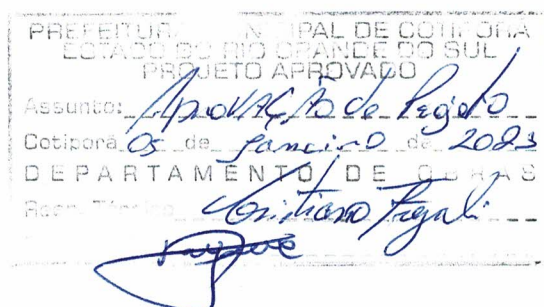 PREFEITURA MUNICIPAL DE COTIPORÃ
ESTADO DO RIO GRANDE DO SUL
PROJETO APROVADO
Assunto: Aprovação de Projeto
Cotiporã 05 de Janeiro de 2023
DEPARTAMENTO DE OBRAS
Resp. Técnico Cristiano